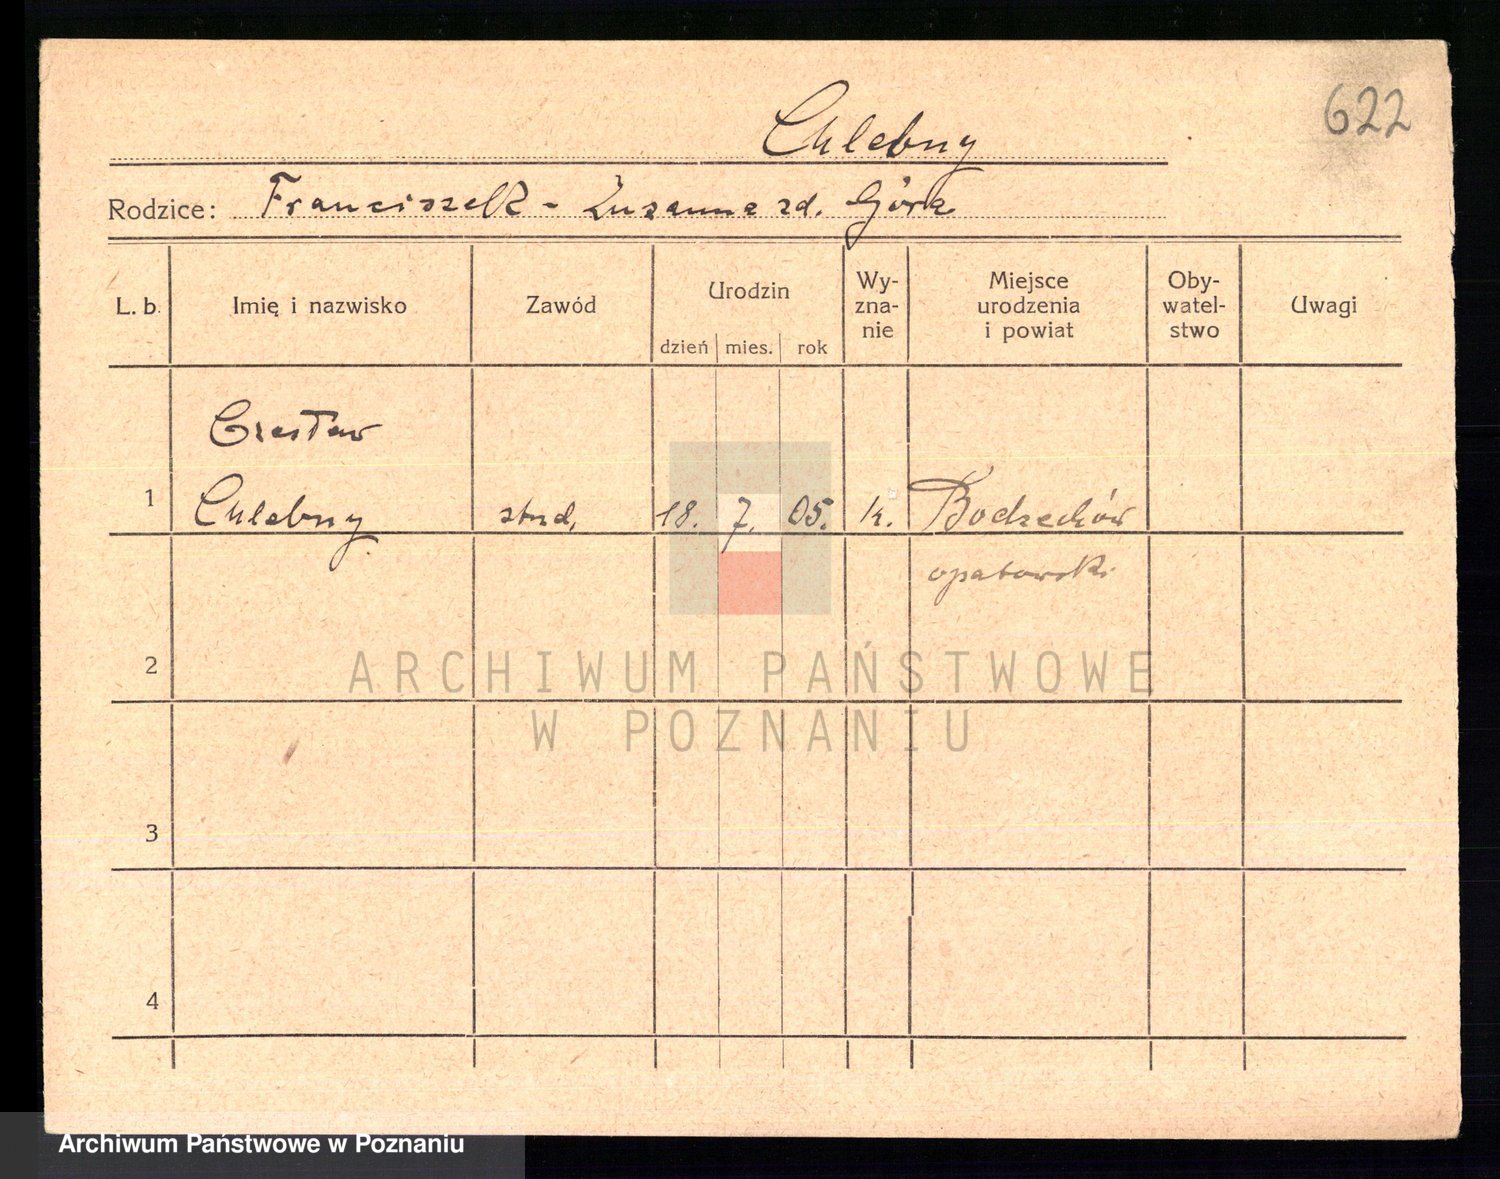 622
Chlebny
Rodzice: Franciszek - Zuzanna zd. Górka
L. b. Imię i nazwisko Zawód Urodzin Wy-zna-nie Miejsce urodzenia i powiat Oby-watel-stwo Uwagi
dzień mies. rok
Czesław
1 Chlebny stud. 18. 7. 05. k. Bodzechów
opatowski
2
ARCHIWUM PAŃSTWOWE
W POZNANIU
3
4
Archiwum Państwowe w Poznaniu